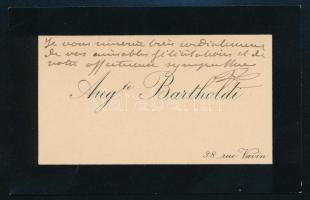 Je vous remercie bien cordialement
de vos aimables félicitations et de
votre affectueuse sympathie
Aug^te Bartholdi
38 rue Vavin